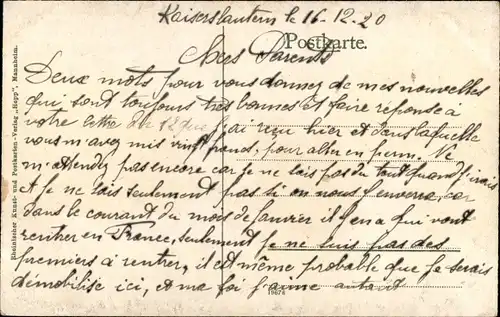 Kaiserslautern le 16-12-20
Chers Parents
Postkarte.
Deux mots pour vous donner de mes nouvelles
qui sont toujours très bonnes et faire réponse à
votre lettre du 12 que j'ai reçu hier et dans laquelle
vous m'avez mis vingt francs, pour aller en perm. Ne
m'attendez pas encore car je ne sais pas du tout quand j'irais
et je ne sais seulement pas si on nous enverra, car
dans le courant du mois de Janvier il y en a qui vont
rentrer en France, seulement je ne suis pas des
premiers à rentrer, il est même probable que je serais
démobilisé ici, et ma foi j'aime autant
19676
Rheinischer Kunst- und Postkarten-Verlag „Hepp", Mannheim.